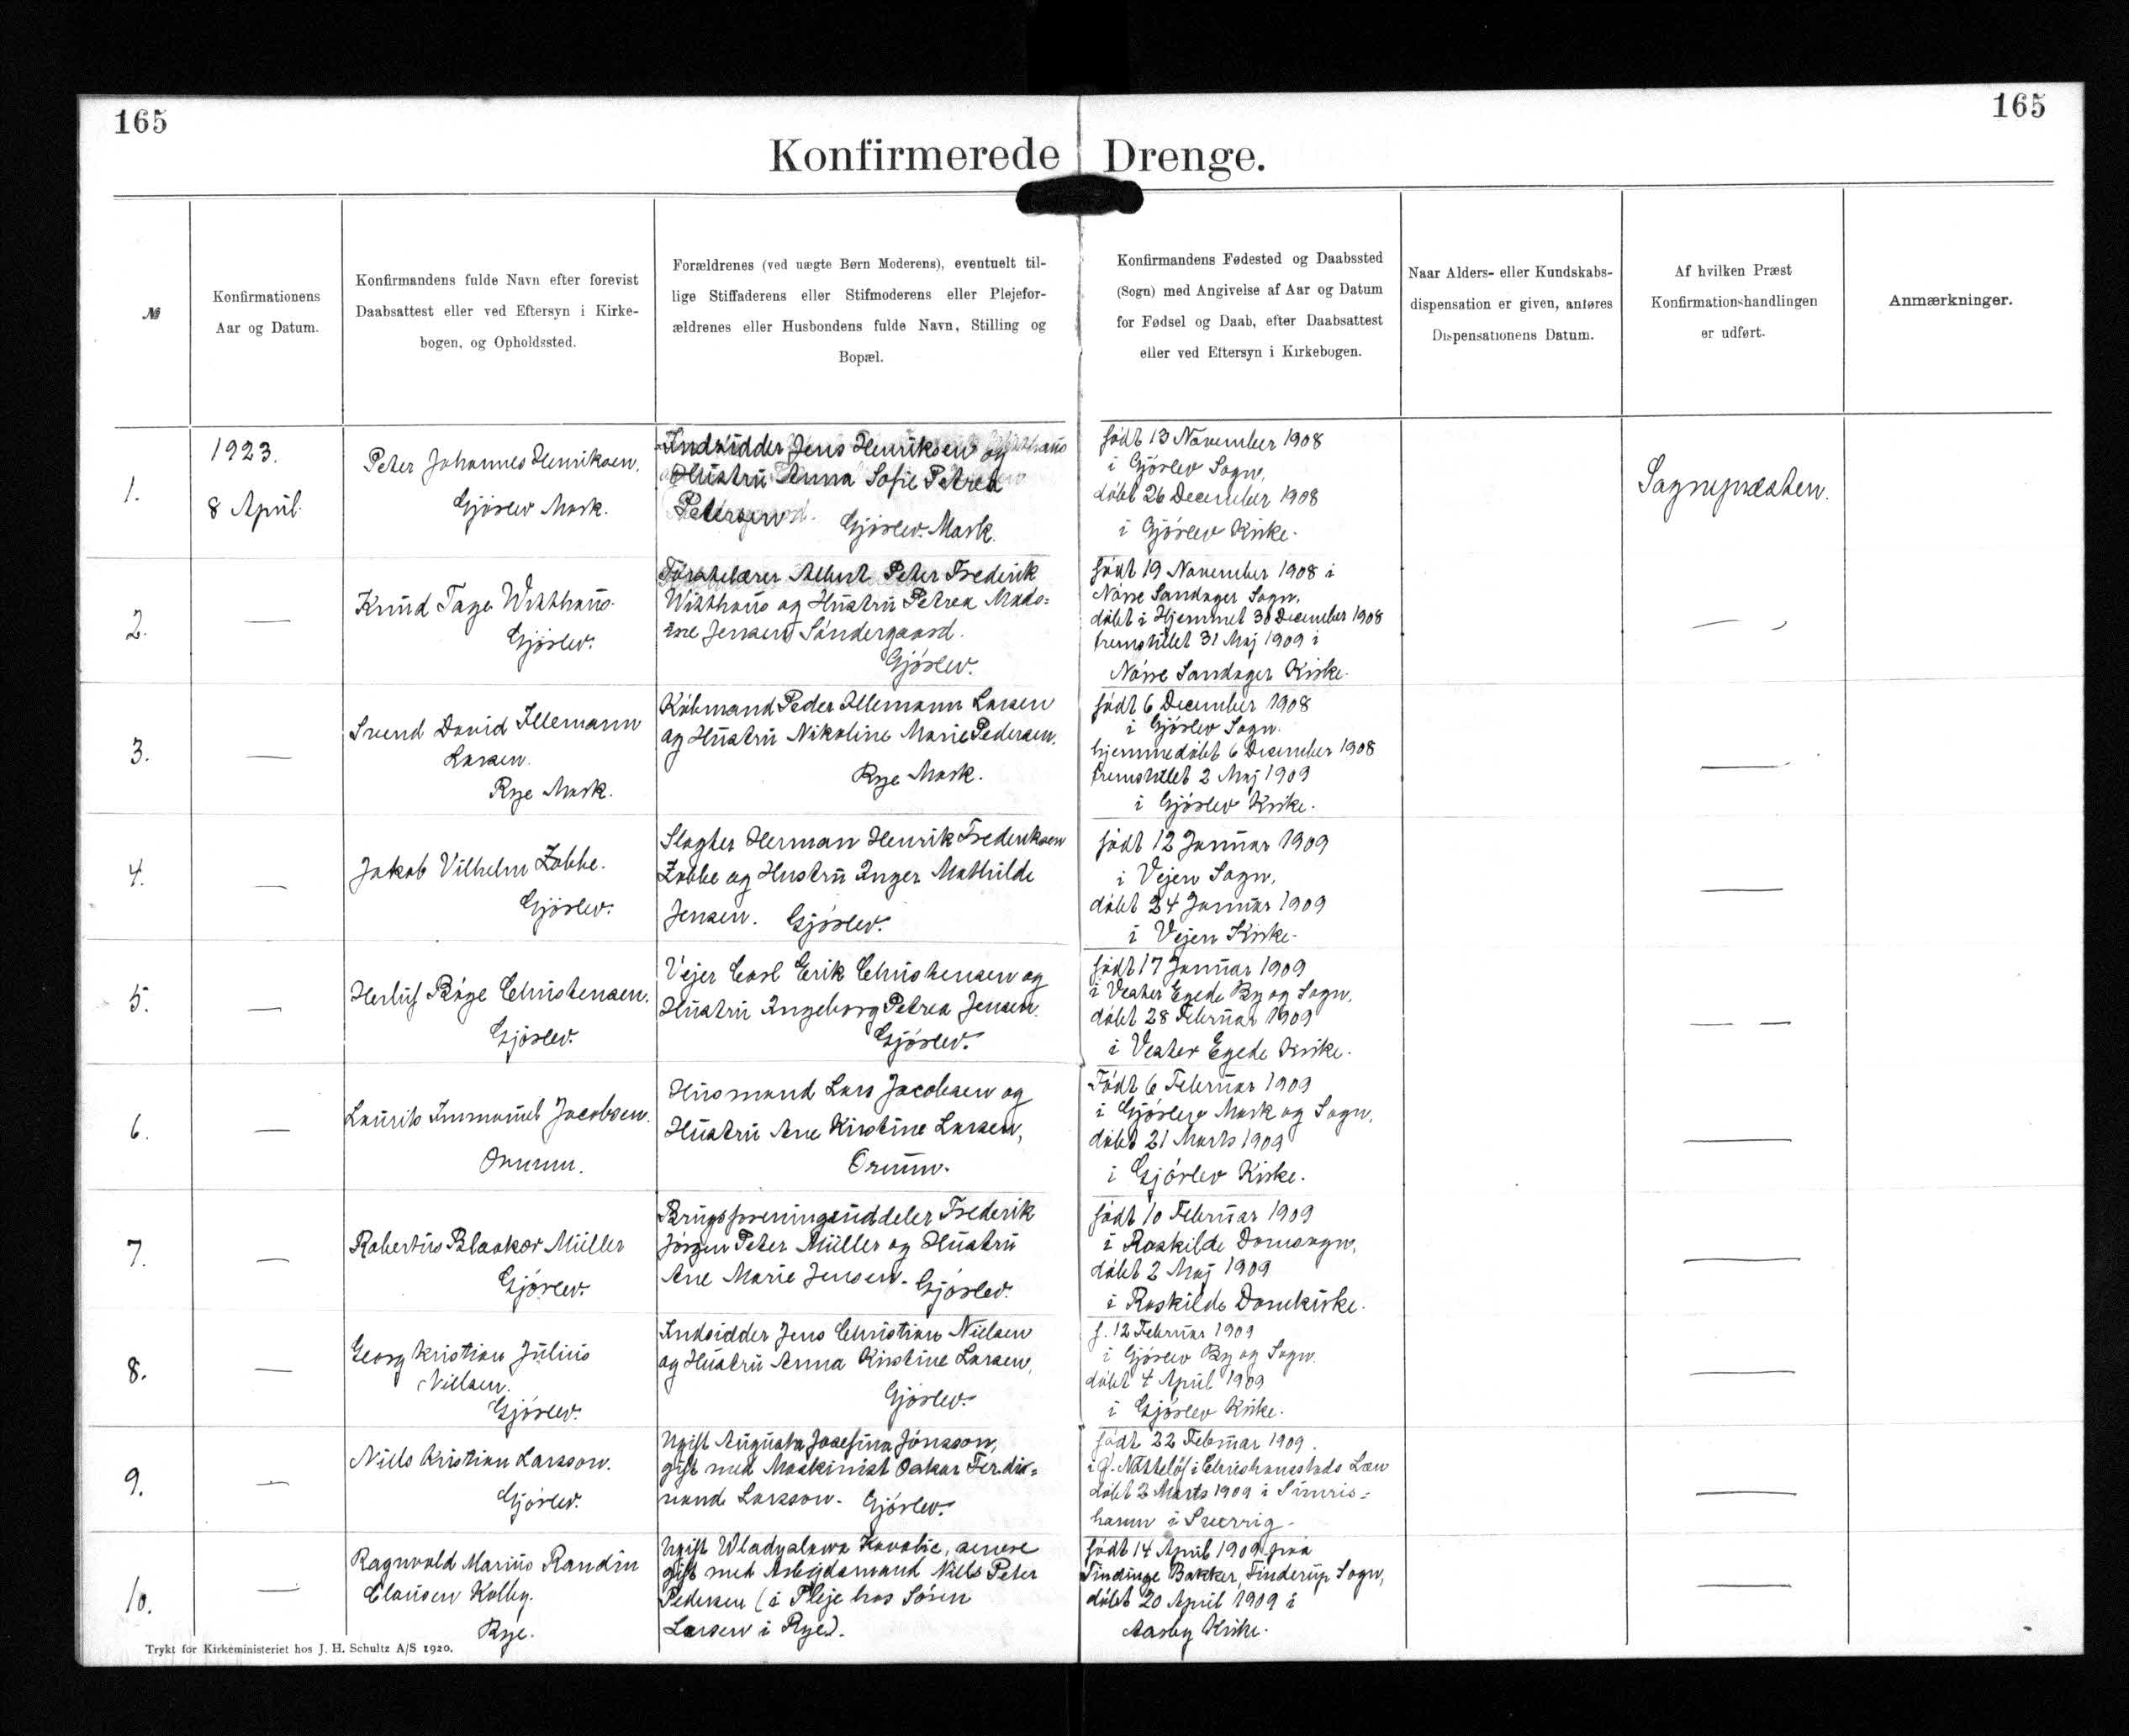 165
165
Konfirmerede Drenge.
№
Konfirmationens
Aar og Datum.
Konfirmandens fulde Navn efter forevist
Daabsattest eller ved Eftersyn i Kirke-
bogen, og Opholdssted.
Forældrenes (ved uægte Børn Moderens), eventuelt til-
lige Stiffaderens eller Stifmoderens eller Plejefor-
ældrenes eller Husbondens fulde Navn, Stilling og
Bopæl.
Konfirmandens Fødested og Daabssted
(Sogn) med Angivelse af Aar og Datum
for Fødsel og Daab, efter Daabsattest
eller ved Eftersyn i Kirkebogen.
Naar Alders- eller Kundskabs-
dispensation er given, anføres
Dispensationens Datum.
Af hvilken Præst
Konfirmationshandlingen
er udført.
Anmærkninger.
1.
1923.
8 April.
Peter Johannes Henriksen.
Gjörlev Mark.
Indsidder Jens Henriksen og
Hustru Anna Sofie Petrea
Petersen. Gjörlev Mark.
født 13 November 1908
i Gjörlev Sogn,
döbt 26 December 1908
i Gjörlev Kirke.
Sognepræsten.
2.
—
Knud Tage Witthaus.
Gjörlev.
Förstelærer Albert Peter Frederik
Witthaus og Hustru Petrea Mads=
ine Jensen Söndergaard.
Gjörlev.
født 19 November 1908 i
Nörre Sandager Sogn,
döbt i Hjemmet 30 December 1908
fremstillet 31 Maj 1909 i
Nörre Sandager Kirke.
—
3.
—
Svend David Illemann
Larsen.
Rye Mark.
Köbmand Peder Illemann Larsen
og Hustru Nikoline Marie Pedersen.
Rye Mark.
født 6 December 1908
i Gjörlev Sogn.
hjemmedöbt 6 December 1908
fremstillet 2 Maj 1909
i Gjörlev Kirke.
—
4.
—
Jakob Vilhelm Zobbe.
Gjörlev.
Slagter Herman Henrik Frederiksen
Zobbe og Hustru Inger Mathilde
Jensen. Gjörlev.
født 12 Januar 1909
i Vejen Sogn,
döbt 24 Januar 1909
i Vejen Kirke.
—
5.
—
Herluf Böge Christensen.
Gjörlev.
Vejer Carl Erik Christensen og
Hustru Ingeborg Petrea Jensen.
Gjörlev.
født 17 Januar 1909
i Vester Egede By og Sogn,
döbt 28 Februar 1909
i Vester Egede Kirke.
— —
6.
—
Laurits Immanuel Jacobsen.
Ornum.
Husmand Lars Jacobsen og
Hustru Ane Kirstine Larsen,
Ornum.
Født 6 Februar 1909
i Gjörlev Mark og Sogn,
döbt 21 Marts 1909
i Gjörlev Kirke.
—
7.
—
Robertus Blaakær Müller
Gjörlev.
Brugsforeningsuddeler Frederik
Jörgen Peter Müller og Hustru
Ane Marie Jensen. Gjörlev.
født 10 Februar 1909
i Roskilde Domsogn,
döbt 2 Maj 1909
i Roskilde Domkirke.
—
8.
—
Georg Kristian Julius
Nielsen.
Gjörlev.
Indsidder Jens Christian Nielsen
og Hustru Anna Kirstine Larsen,
Gjörlev.
f. 12 Februar 1909
i Gjörlev By og Sogn.
döbt 4 April 1909
i Gjörlev Kirke.
—
9.
—
Niels Kristian Larsson.
Gjörlev.
Ugift Augusta Josefina Jönsson,
gift med Maskinist Oskar Ferdi=
nand Larsson. Gjörlev.
født 22 Februar 1909.
i Christiansstads Læn
döbt 2 Marts 1909 i Simris=
hamn i Sverrig.
—
10.
—
Ragnvald Marius Randin
Clausen Kolby.
Rye.
Ugift Wladyslawa senere
gift med Arbejdsmand Niels Peter
Pedersen (i Pleje hos Sören
Larsen i Rye).
født 14 April 1909 paa
Tindinge Bakker, Finderup Sogn,
döbt 20 April 1909 i
Aasby Kirke.
—
Trykt for Kirkeministeriet hos J. H. Schultz A/S 1920.